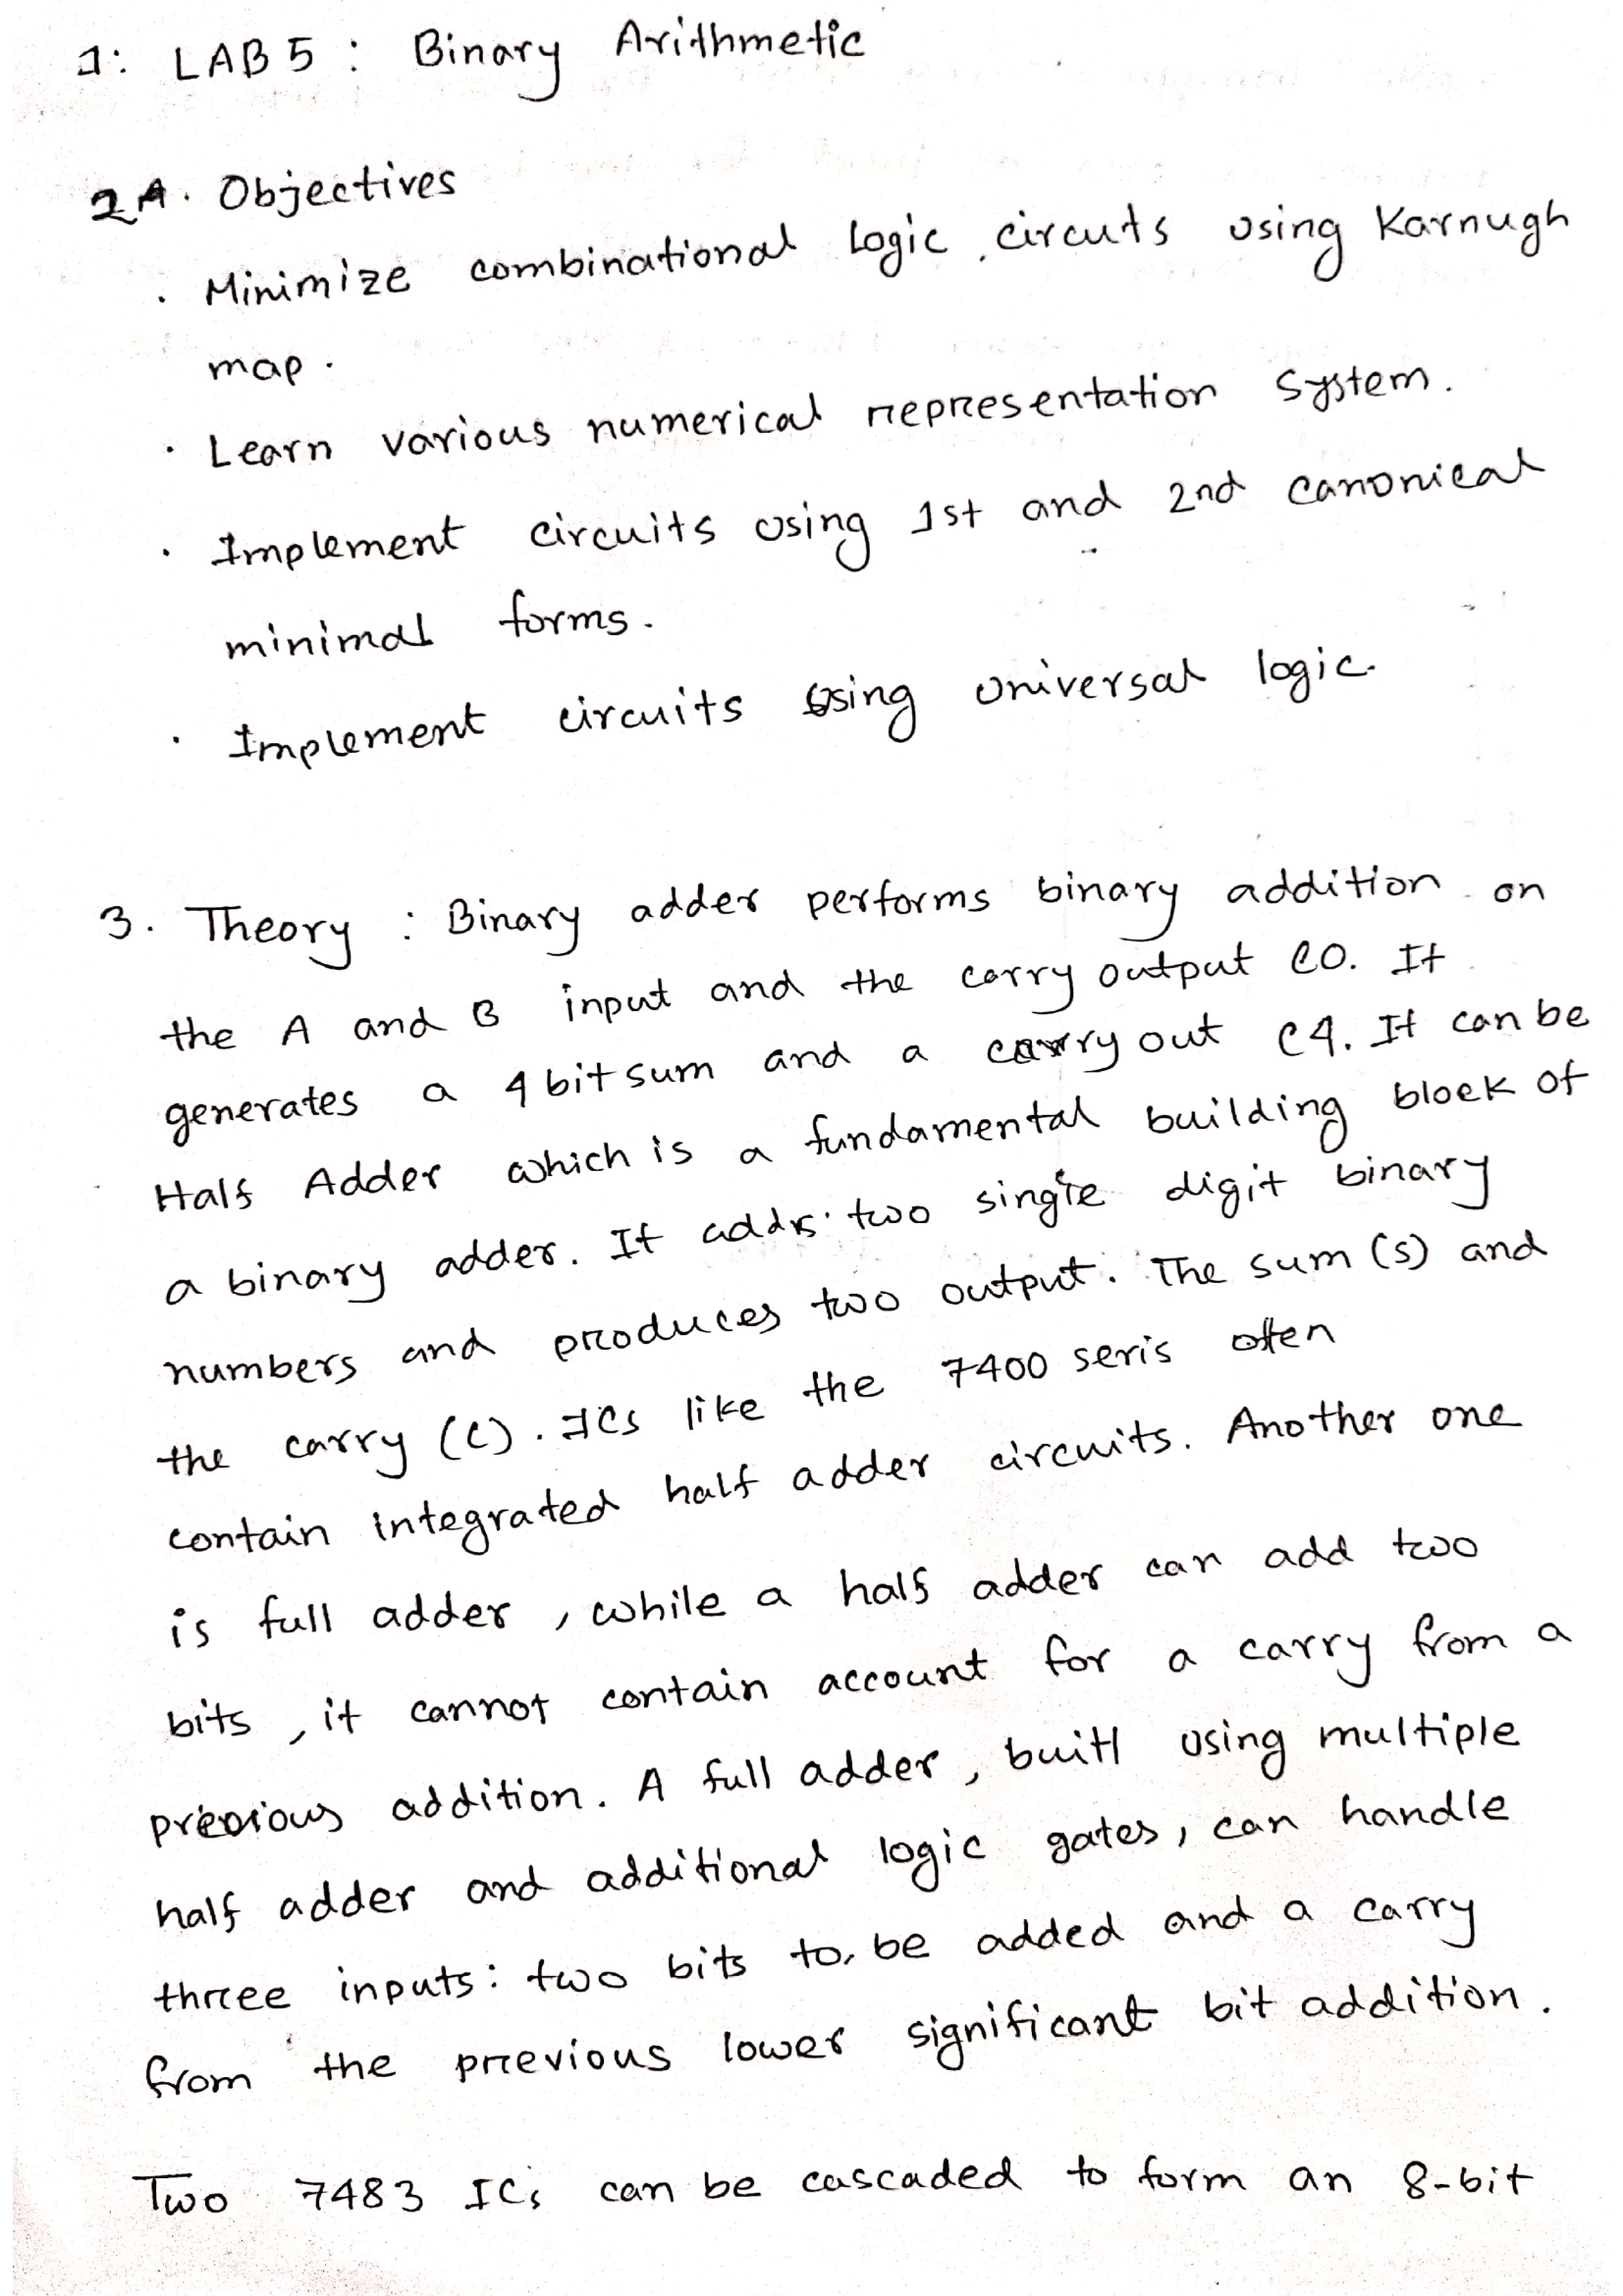 1: LAB 5 : Binary Arithmetic
2A. Objectives
· Minimize combinational logic circuts using Karnugh
map.
· Learn various numerical representation system.
· Implement circuits using 1st and 2nd canonical
minimal forms.
· Implement circuits using universal logic.
3. Theory : Binary adder performs binary addition on
the A and B input and the carry output C0. It
generates a 4 bit sum and a carry out C4. It can be
Half Adder which is a fundamental building block of
a binary adder. It adds two single digit binary
numbers and produces two output. The sum (s) and
the carry (C). ICs like the 7400 seris often
contain integrated half adder circuits. Another one
is full adder, while a half adder can add two
bits, it cannot contain account for a carry from a
previous addition. A full adder, buitl using multiple
half adder and additional logic gates, can handle
three inputs: two bits to be added and a carry
from the previous lower significant bit addition.
Two 7483 ICs can be cascaded to form an 8-bit